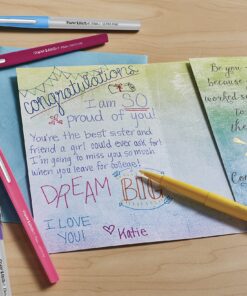 Paper Mate
Paper Mate
congratulations
I am SO
proud of you!
You're the best sister and
friend a girl could ever ask for!
I'm going to miss you so much
when you leave for college!
DREAM BIG
I LOVE
YOU!
Katie
Be you
because
worked s
to